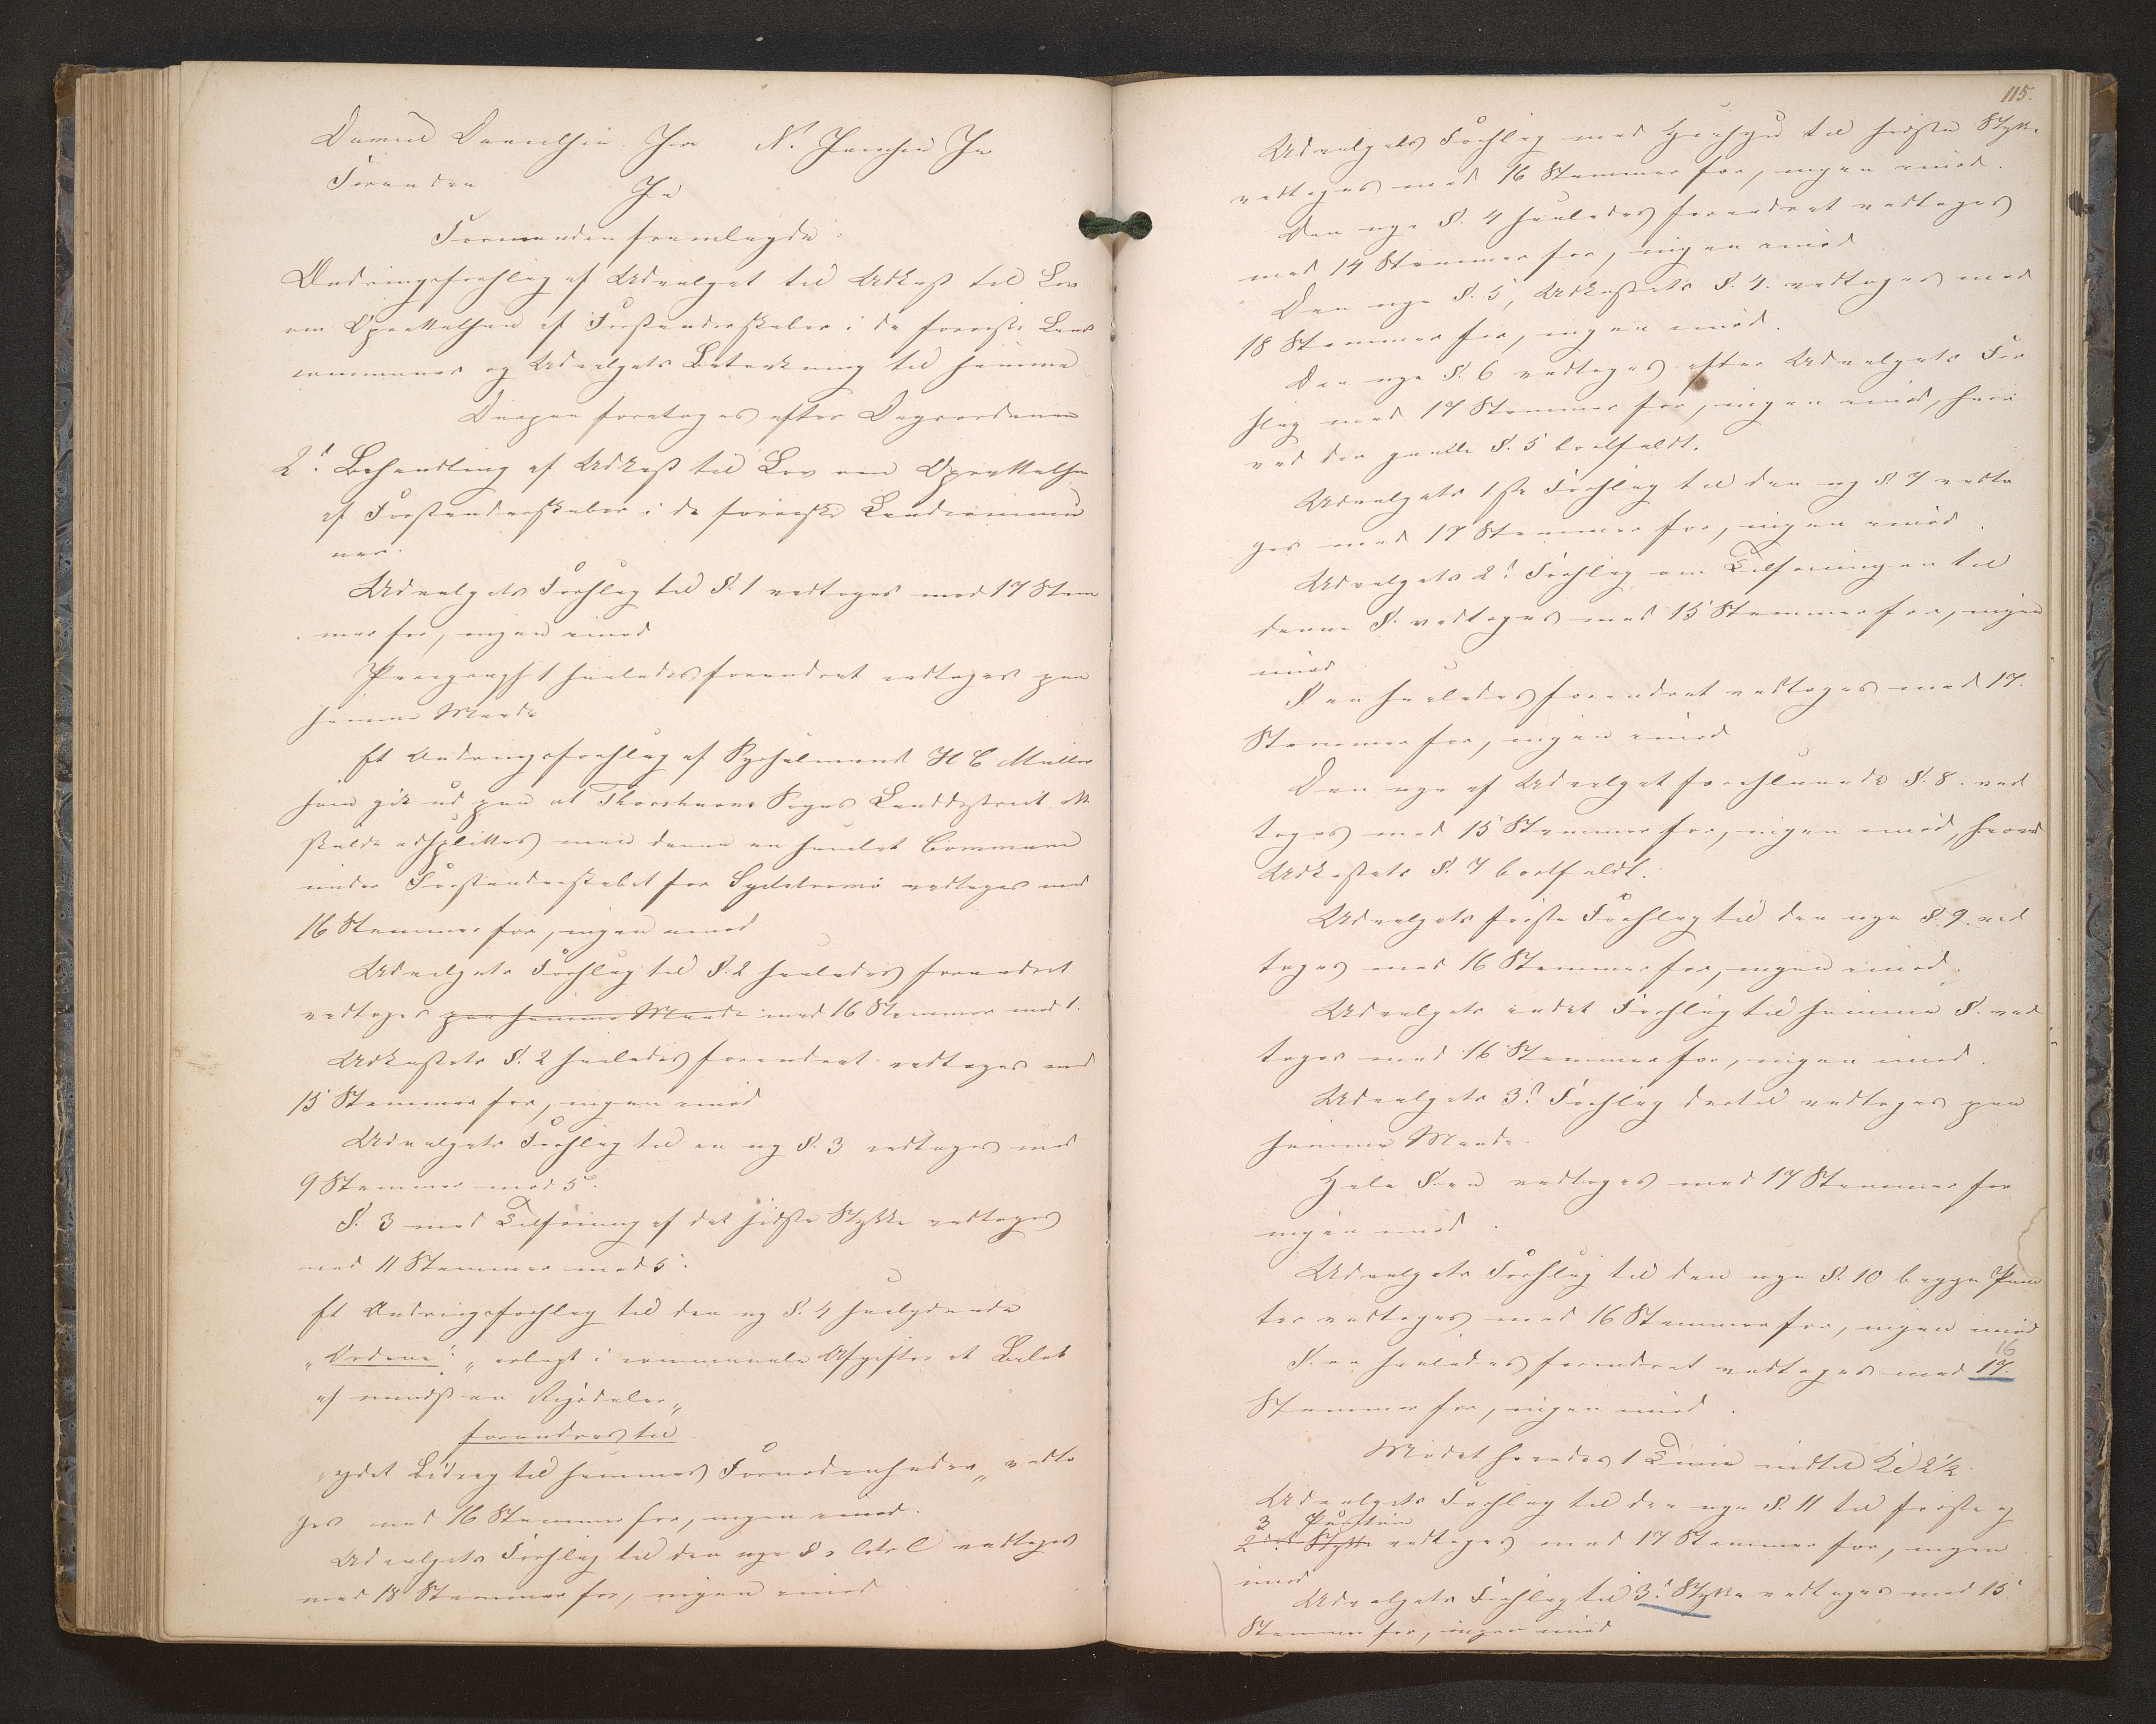 Daniel Danielsen Ja N. Joensen Ja
Formanden Ja
Formanden fremlagde:
Ændringsforslag af Udvalget til Udkast til Lov
om Oprettelsen af Forstanderskaber i de færøiske Land
communer og Udvalgets Betænkning til samme
Derpaa foretoges efter Dagsordenen
2d. Behandling af Udkast til Lov om Oprettelsen
af Forstanderskaber i de færøiske Landcommu
ner.
Udvalgets Forslag til §. 1 vedtoges med 17 Stem
mer for, ingen imod
Paragraph 1 saaledes forandret vedtoges paa
samme Maade
Et Ændringsforslag af Sysselmand H C Müller
som gik ud paa at Thorshavns Sogns Landdistrict ikke
skulde adsplittes men danne en samlet Commune
under Forstanderskabet for Sydstrømø vedtoges med
16 Stemmer for, ingen imod
Udvalgets Forslag til §. 2 saaledes forandret
vedtoges paa samme Maade med 16 Stemmer mod 1.
Udkastets §. 2 saaledes forandret vedtoges med
15 Stemmer for, ingen imod
Udvalgets Forslag til en ny §. 3 vedtoges med
9 Stemmer mod 5.
§. 3 med Tilføining af det sidste Stykke vedtoges
med 11 Stemmer mod 5.
Et Ændringsforslag til den ny §. 4 saalydende
"Ordene": "erlagt i communale Afgifter et Beløb
af mindst en Rigsdaler"
forandres til
ydet Bidrag til sammes Fornødenheder" vedto
ges med 16 Stemmer for, ingen imod.
Udvalgets Forslag til den nye § litr C vedtoges
med 18 Stemmer for, ingen imod
115.
Udvalgets Forslag med Hensyn til sidste Stykke
vedtoges med 16 Stemmer for, ingen imod.
Den nye §. 4 saaledes forandret vedtoges
med 14 Stemmer for, ingen imod
Den nye §. 5, Udkastets §. 4. vedtoges med
18 Stemmer for, ingen imod.
Den nye §. 6 vedtoges efter Udvalgets For
slag med 17 Stemmer for, ingen imod, hvor
ved den gamle §. 5 bortfaldt.
Udvalgets 1ste Forslag til den ny §. 7 vedto
ges med 17 Stemmer for, ingen imod.
Udvalgets 2d. Forslag om Tilføiningen til
denne §. vedtoges med 15 Stemmer for, ingen
imod
§en saaledes forandret vedtoges med 17.
Stemmer for, ingen imod
Den nye af Udvalget foreslaaede §. 8. ved
toges med 15 Stemmer for, ingen imod, hvorved
Udkastets §. 7 bortfaldt.
Udvalgets første Forslag til den nye §. 9. ved
toges med 16 Stemmer for, ingen imod.
Udvalgets andet Forslag til samme §. ved
toges med 16 Stemmer for, ingen imod.
Udvalgets 3d. Forslag dertil vedtoges paa
samme Maade.
Hele §.en vedtoges med 17 Stemmer for
ingen imod.
Udvalgets Forslag til den nye §. 10 begge Punk
ter vedtoges med 16 Stemmer for, ingen imod
16
§.en saaledes forandret vedtoges med 17.
Stemmer for, ingen imod.
Mødet hævedes 1 Time indtil Kl 2½
Udvalgets Forslag til den nye §. 11 til første og
3 Punktum
2det Stykke vedtoges med 17 Stemmer for, ingen
imod
Udvalgets Forslag til 3d. Stykke vedtoges med 15
Stemmer for, ingen imod